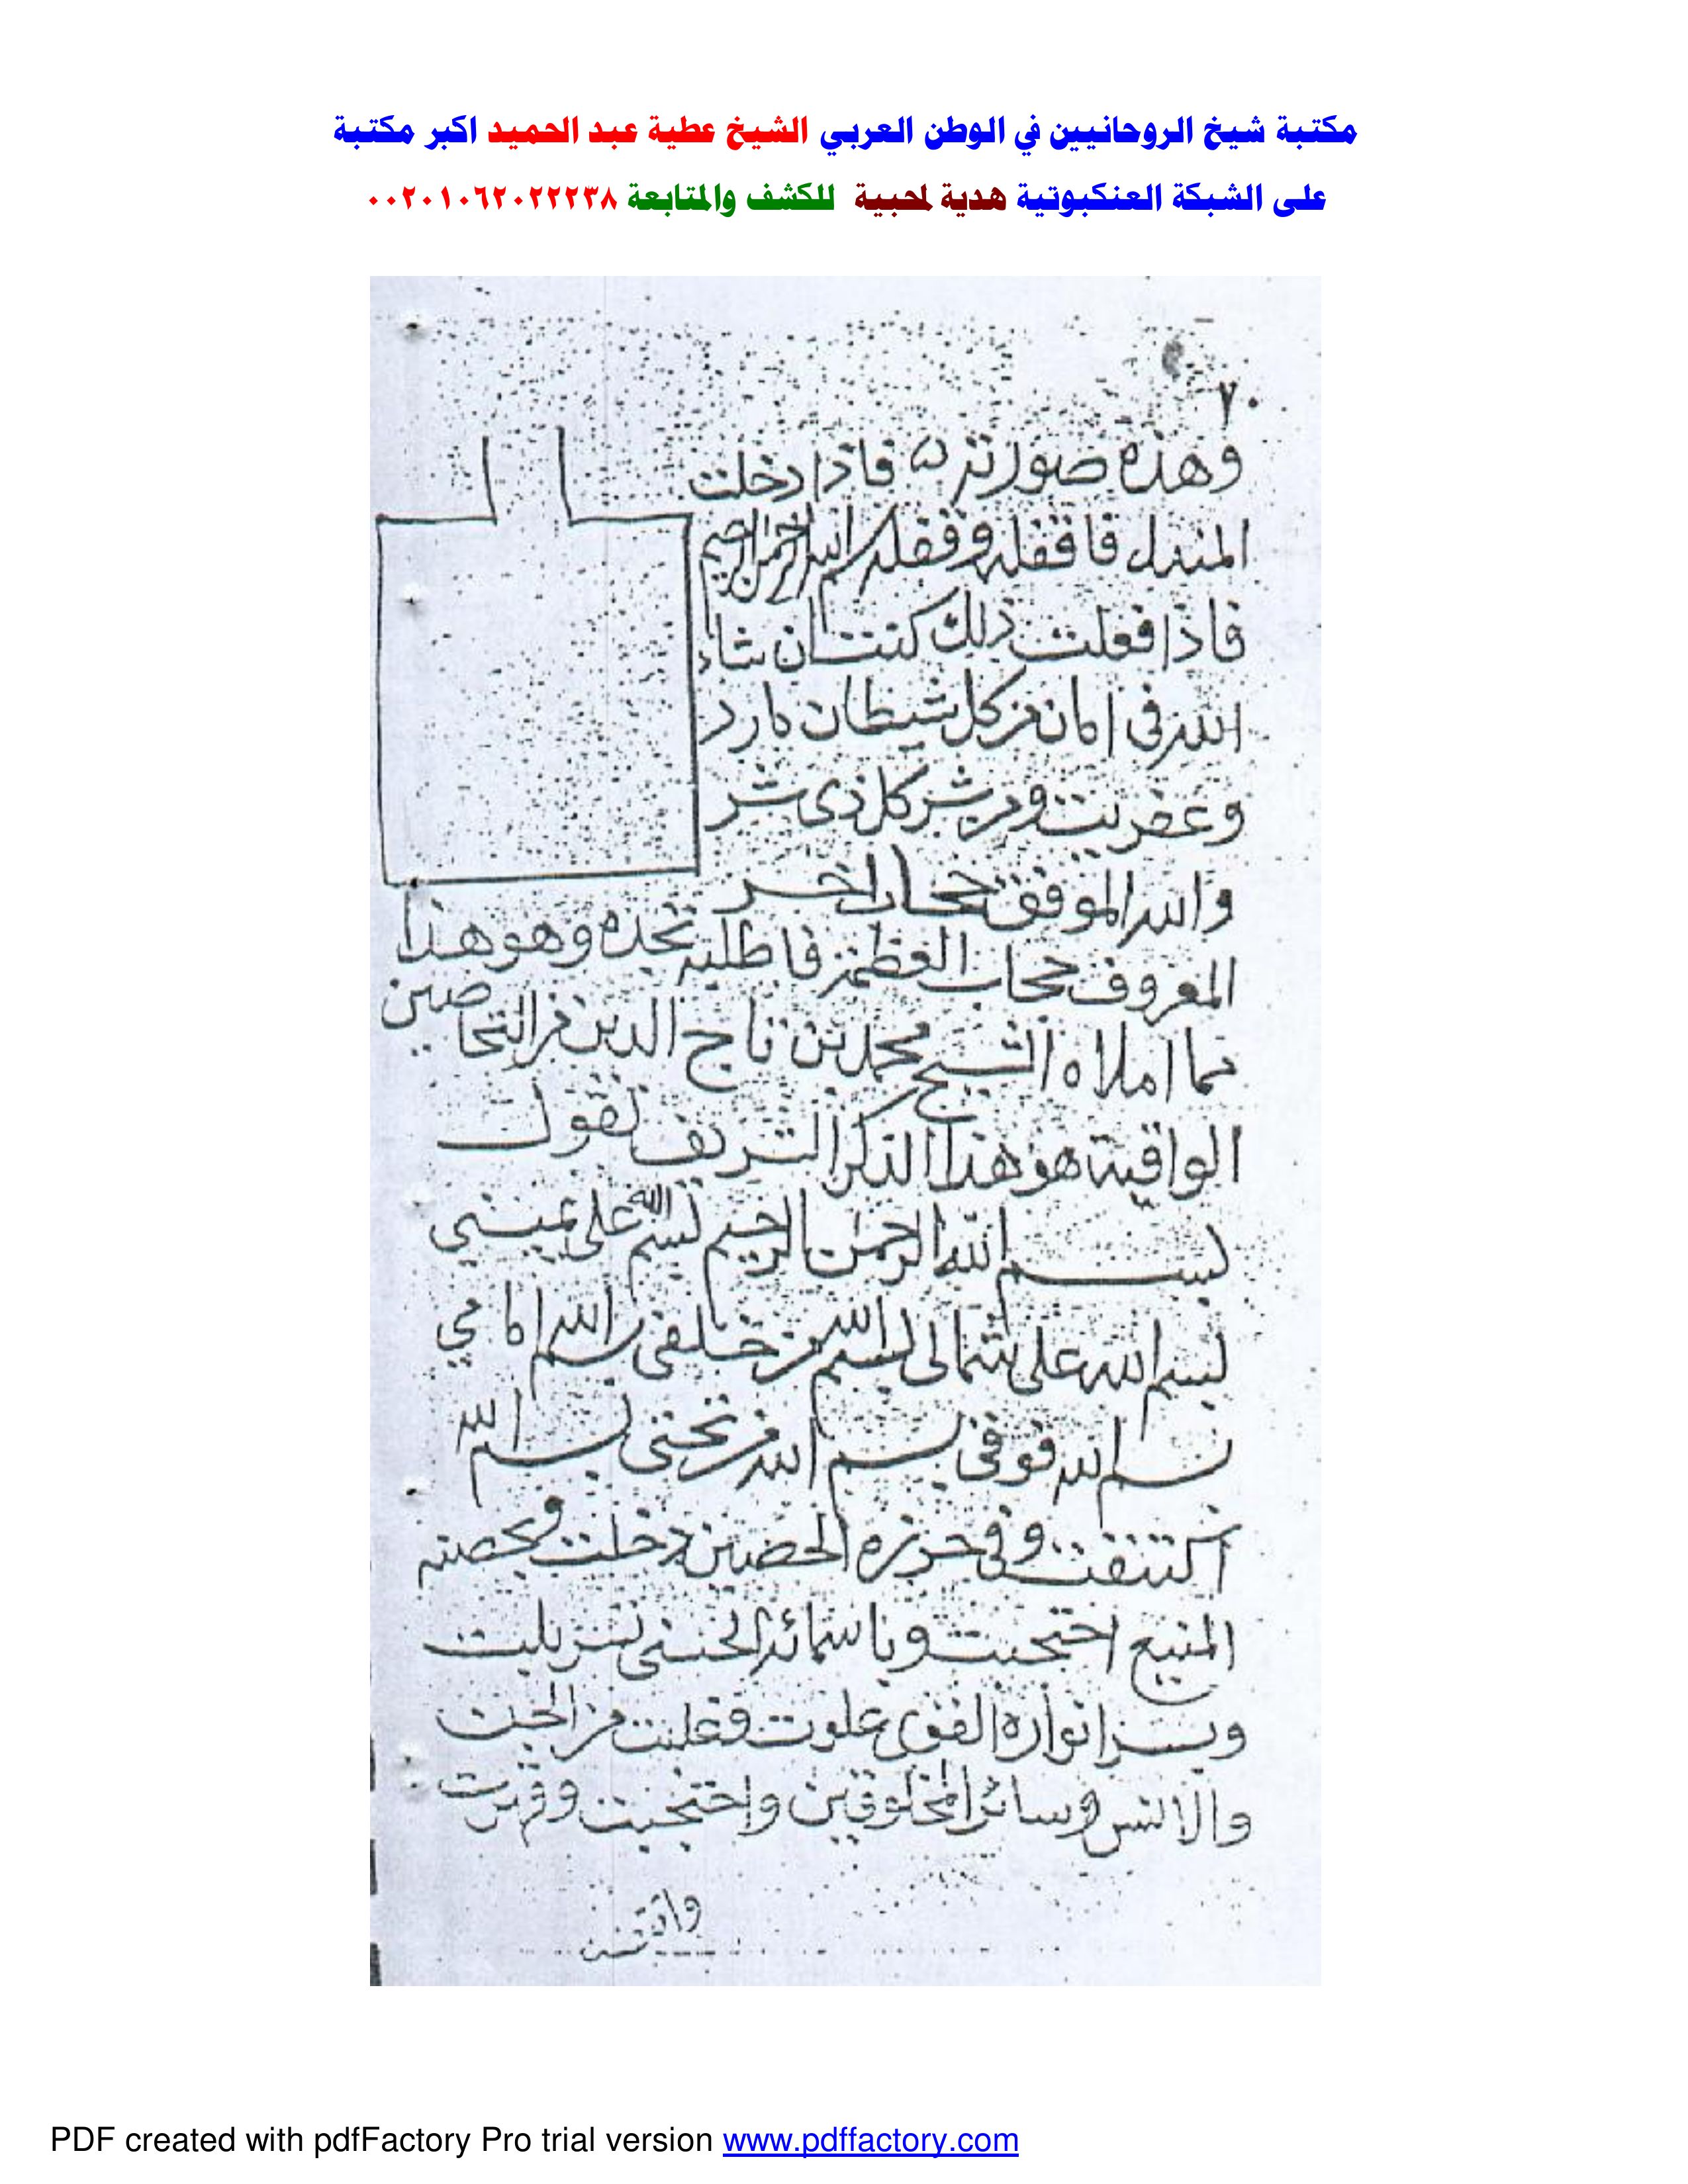 مكتبة شيخ الروحانيين في الوطن العربي الشيخ عطية عبد الحميد اكبر مكتبة
على الشبكة العنكبوتية هدية لمحبية للكشف والمتابعة ٠٠٢٠١٠٦٢٠٢٢٢٣٨
٧٠
وهذه صورته فاذا دخلت
المندل فاقفله وقفله بسم الله الرحمن الرحيم
فاذا فعلت ذلك كنت ان شاء
الله في امان من كل شيطان مارد
وعفريت ومن شر كل ذي شر
والله الموفق حجاب اخر
المعروف حجاب العظمة فاطلبه تجده وهو هذا
مما املاه الشيخ محمد بن تاج الدين من التحاصين
الواقية هو هذا الذكر الشريف تقول
بسم الله الرحمن الرحيم بسم الله على يميني
بسم الله على شمالي بسم الله من خلفي بسم الله امامي
بسم الله فوقي بسم الله من تحتي بسم الله
اكتنفت وفي حرزه الحصين دخلت وبحصنه
المنيع احتجبت وباسمائه الحسنى تسربلت
وبسر انواره القوي علوت وغلبت من الجن
والانس وسائر المخلوقين واحتجبت
PDF created with pdfFactory Pro trial version www.pdffactory.com